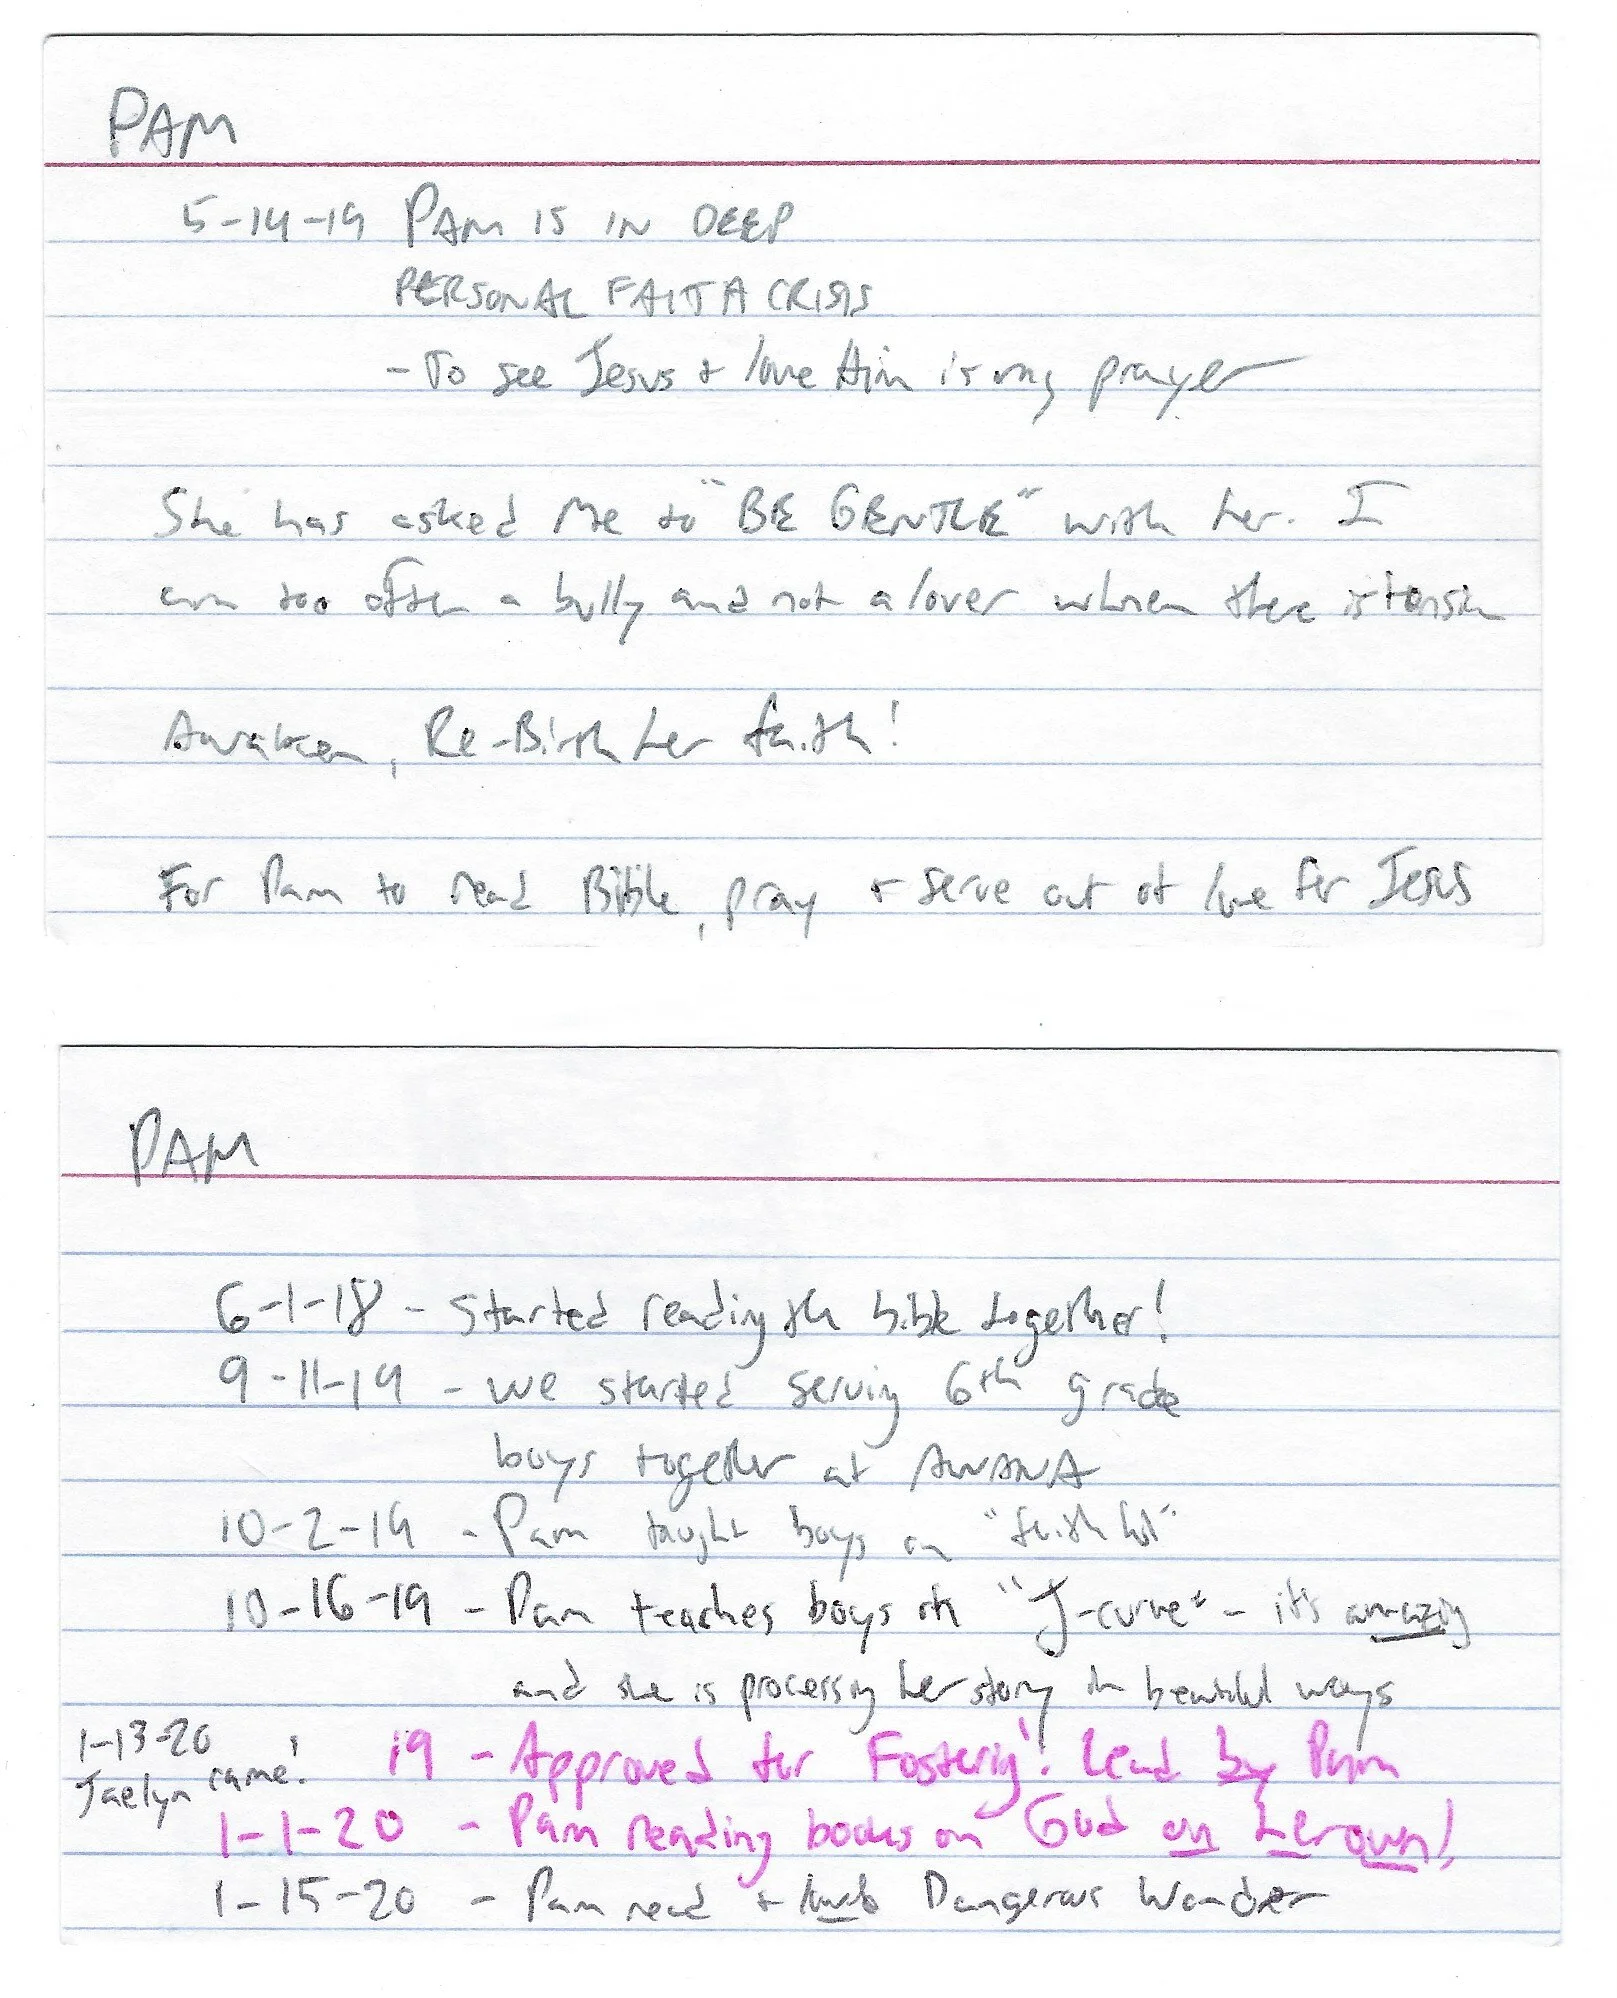 PAM
5-14-19 PAM IS IN DEEP
PERSONAL FAITH CRISIS
- To see Jesus + love Him is my prayer
She has asked Me to "BE GENTLE" with her. I
am too often a bully and not a lover when there is tension
Awaken, Re-Birth her faith!
For Pam to read Bible, pray + serve out of love for Jesus
PAM
6-1-18 - Started reading the bible together!
9-11-19 - we started serving 6th grade
boys together at AWANA
10-2-19 - Pam taught boys on "faithful"
10-16-19 - Pam teaches boys on "J-curve" - it's amazing
and she is processing her story in beautiful ways
1-13-20
Jaelyn came!
19 - Approved for Fostering! Lead by Pam
1-1-20 - Pam reading books on God on her own!
1-15-20 - Pam read + loved Dangerous Wonder